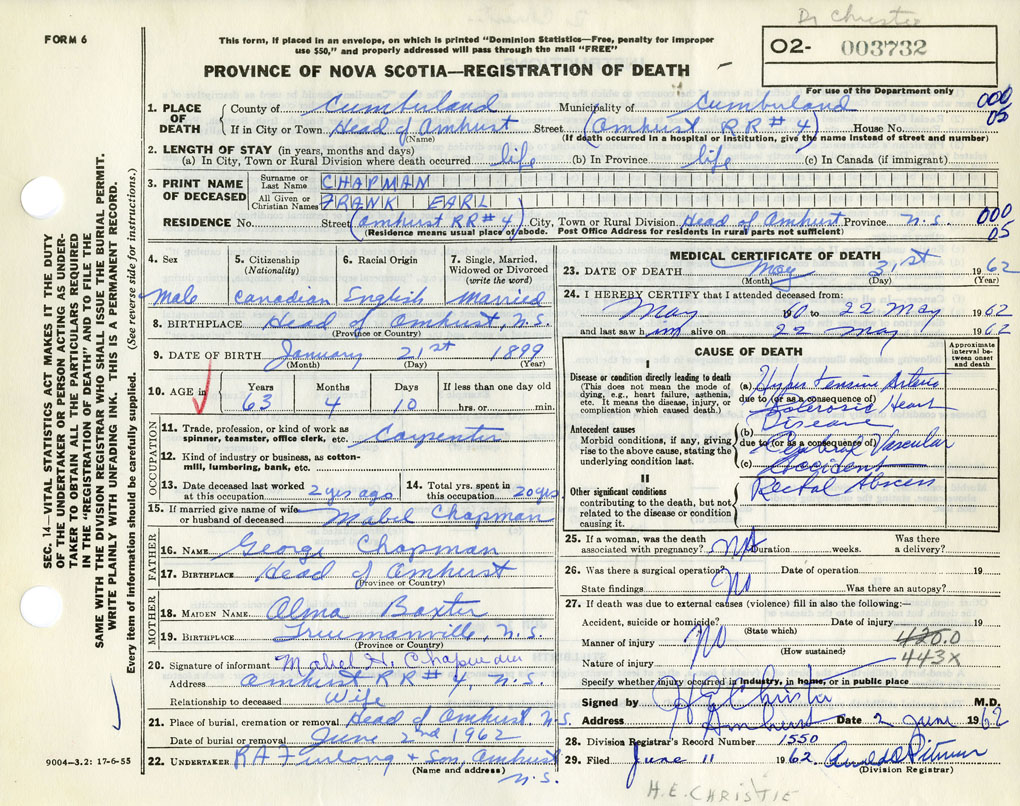 Dr Christie
FORM 6
This form, if placed in an envelope, on which is printed "Dominion Statistics—Free, penalty for improper
use $50," and properly addressed will pass through the mail "FREE"
O2- 003732
PROVINCE OF NOVA SCOTIA—REGISTRATION OF DEATH
For use of the Department only
1. PLACE OF DEATH County of Cumberland Municipality of Cumberland 000
If in City or Town Head of Amherst Street (Amherst RR #4) House No. 05
(Name) (If death occurred in a hospital or institution, give the name instead of street and number)
2. LENGTH OF STAY (in years, months and days)
(a) In City, Town or Rural Division where death occurred life (b) In Province life (c) In Canada (if immigrant)
3. PRINT NAME OF DECEASED Surname or Last Name CHAPMAN
All Given or Christian Names FRANK EARL
RESIDENCE No. Street (Amherst RR #4) City, Town or Rural Division Head of Amherst Province N.S. 000
(Residence means usual place of abode. Post Office Address for residents in rural parts not sufficient) 05
4. Sex 5. Citizenship (Nationality) 6. Racial Origin 7. Single, Married, Widowed or Divorced (write the word)
Male Canadian English Married
8. BIRTHPLACE Head of Amherst, N.S.
(Province or Country)
9. DATE OF BIRTH January 21st 1899
(Month) (Day) (Year)
10. AGE in Years Months Days If less than one day old
63 4 10 hrs. or min.
OCCUPATION
11. Trade, profession, or kind of work as
spinner, teamster, office clerk, etc. Carpenter
12. Kind of industry or business, as cotton-
mill, lumbering, bank, etc.
13. Date deceased last worked at this occupation 2 yrs ago 14. Total yrs. spent in this occupation 20 yrs
15. If married give name of wife
or husband of deceased Mabel Chapman
FATHER
16. NAME George Chapman
17. BIRTHPLACE Head of Amherst
(Province or Country)
MOTHER
18. MAIDEN NAME Alma Baxter
19. BIRTHPLACE Truemanville, N.S.
(Province or Country)
20. Signature of informant Mabel H. Chapman
Address Amherst RR #4, N.S.
Relationship to deceased Wife
21. Place of burial, cremation or removal Head of Amherst, N.S.
Date of burial or removal June 2nd 1962
22. UNDERTAKER R A Furlong + Son, Amherst
(Name and address) N.S.
9004—3.2: 17-6-55
MEDICAL CERTIFICATE OF DEATH
23. DATE OF DEATH May 31st 1962
(Month) (Day) (Year)
24. I HEREBY CERTIFY that I attended deceased from:
May 1960 to 22 May 1962
and last saw him alive on 22 May 1962
CAUSE OF DEATH
Approximate interval between onset and death
I
Disease or condition directly leading to death
(This does not mean the mode of
dying, e.g., heart failure, asthenia,
etc. It means the disease, injury, or
complication which caused death.)
(a) Hypertensive Arterio
due to (or as a consequence of)
sclerosis Heart
Disease
Antecedent causes
Morbid conditions, if any, giving
rise to the above cause, stating the
underlying condition last.
(b)
due to (or as a consequence of)
Cerebral Vascular
(c) Accident
II
Other significant conditions
contributing to the death, but not
related to the disease or condition
causing it.
Rectal Abscess
25. If a woman, was the death Was there
associated with pregnancy? Duration weeks. a delivery?
26. Was there a surgical operation? No Date of operation 19
State findings Was there an autopsy?
27. If death was due to external causes (violence) fill in also the following:—
Accident, suicide or homicide? Date of injury 19
(State which)
Manner of injury No 420.0
(How sustained)
Nature of injury 443X
Specify whether injury occurred in industry, in home, or in public place
Signed by H E Christie M.D.
Address Amherst Date 2 June 1962
28. Division Registrar's Record Number 1550
29. Filed June 11 1962
(Division Registrar)
H.E. CHRISTIE
SEC. 14—VITAL STATISTICS ACT MAKES IT THE DUTY
OF THE UNDERTAKER OR PERSON ACTING AS UNDER-
TAKER TO OBTAIN ALL THE PARTICULARS REQUIRED
IN THE "REGISTRATION OF DEATH" AND TO FILE THE
SAME WITH THE DIVISION REGISTRAR WHO SHALL ISSUE THE BURIAL PERMIT.
WRITE PLAINLY WITH UNFADING INK. THIS IS A PERMANENT RECORD.
Every item of Information should be carefully supplied. (See reverse side for instructions.)